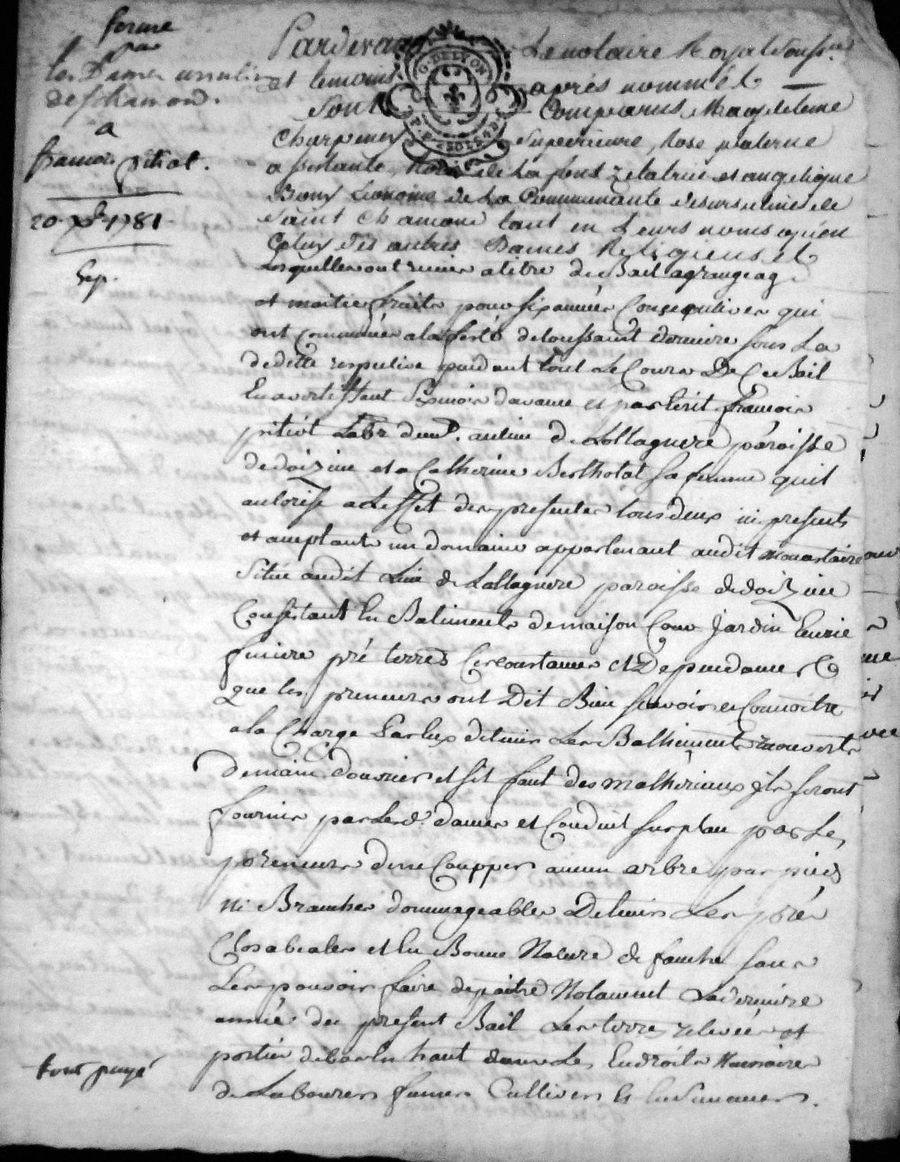 ferme
par
les Dames ursulines
de st chamond.
a
francois pitiot.
20 xbre 1781
Exp.
Pardevant Le notaire Royal soussné
et temoins apres nommés
Sont Comparus Magdeleine
Charpenay Superieure, Rose paterne
assistante, de La font zelatrice et angelique
Bony Econome de La Communauté des ursulines de
saint Chamond tant en Leurs noms qu'en
Celuy des autres Dames Religieuses
Lesquelles ont remis a titre de Bail a grangeage
et moitie fruits pour six années Consequtives qui
ont Commencées a la feste de toussaint derniere sous La
dedite respective pendant tout Le Cours De Ce Bail
En avertissant six mois davance et par Ecrit francois
pitiot Labr demt. au lieu de Lollagnere paroisse
de doizieu et a Catherine Bertholat sa femme quil
autorise a L'effet des presentes tous deux ici presents
et acceptant un domaine appartenant audit monastaire
Situé audit Lieu de Lollagnere paroisse de doizieu
Consistant En Batiments de maison Cour Jardin Ecurie
feniere pré terres Circonstances et Dependances
que les preneurs ont Dit Bien scavoir et Connoitre
a la Charge Par Eux de tenir Les Bathiments recouverts
de main d'ouvrier et s'il faut des mathériaux ils seront
fournis par Lesd. dames et Conduit sur place par Les
preneurs de ne Coupper aucun arbre par pied
ni Branches dommageables De tenir Les prés
Clos abealés et En Bonne Nature de fauche sans
Les pouvoir faire depaitre Notament La derniere
année du present Bail Les terres relevées et
portées de bas En haut dans Les Endroits Necessaires
de Labourer fumer Cultiver Et Ensemancer.
tout payé
G. DE LYON